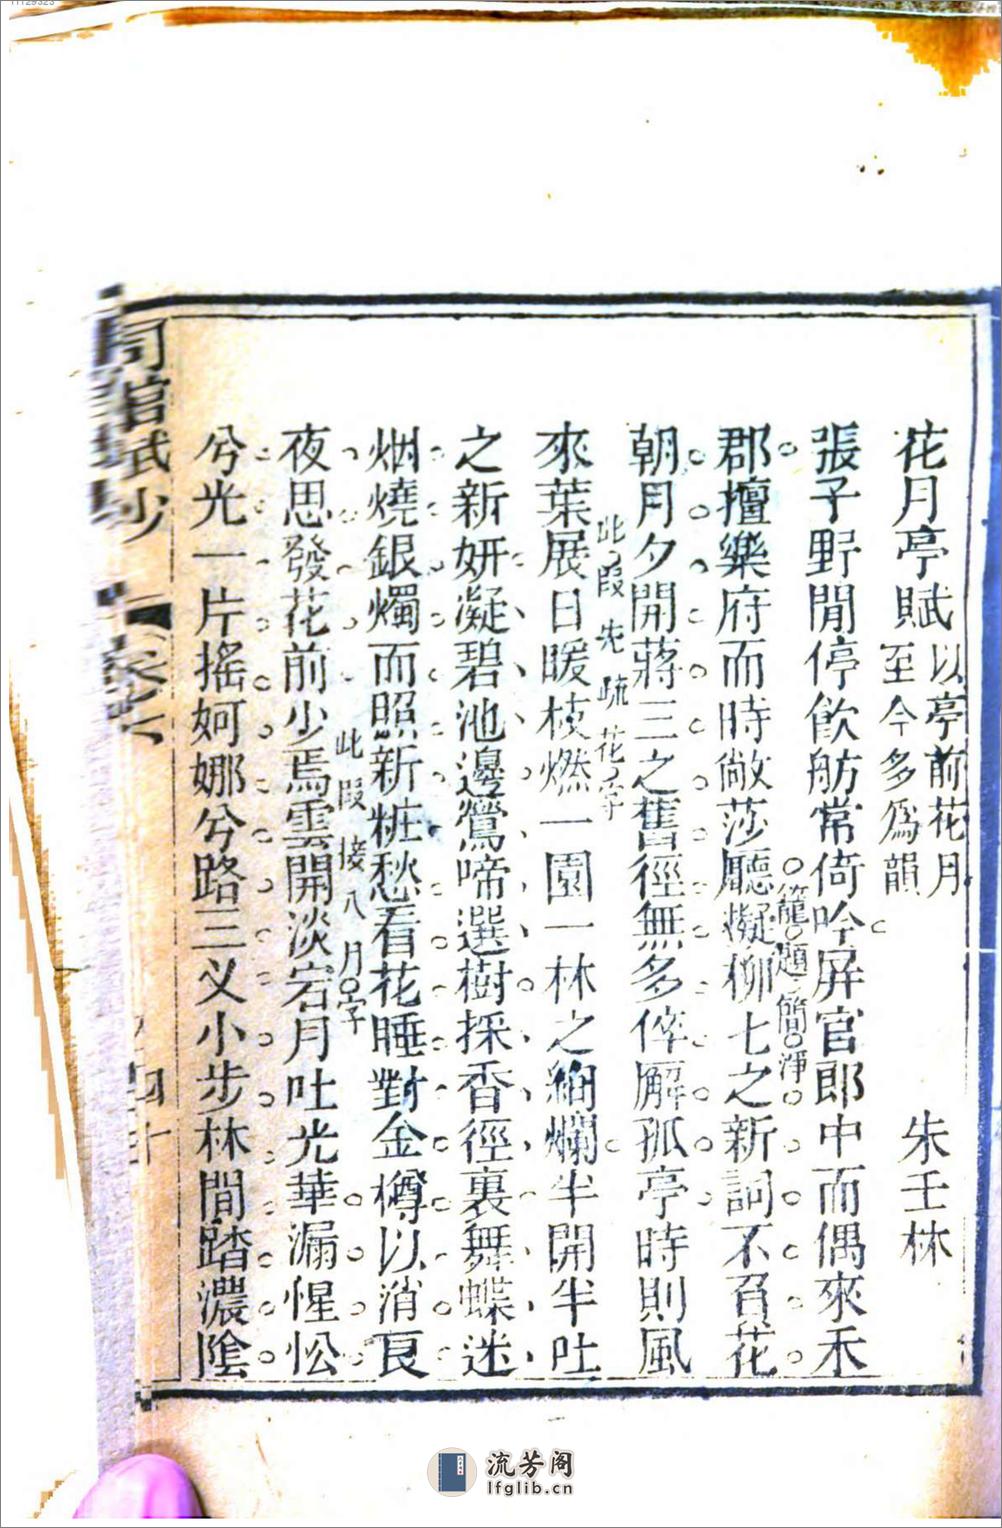 11129323
花月亭賦 以亭前花月至今多爲韻 朱壬林
張子野閒停飲舫常倚吟屏官郎中而偶來禾
籠題簡淨
郡擅樂府而時敞莎廳擬柳七之新詞不負花
朝月夕開蔣三之舊徑無多倅廨孤亭時則風
此段先疏花字
來葉展日暖枝燃一園一林之絢爛半開半吐
之新妍凝碧池邊鶯啼選樹採香徑裏舞蝶迷
烟燒銀燭而照新粧愁看花睡對金樽以消良
此段接入月字
夜思發花前少焉雲開淡宕月吐光華漏惺忪
兮光一片搖婀娜兮路三叉小步林間踏濃陰
館賦抄 卷六 四十
流芳阁
lfglib.cn